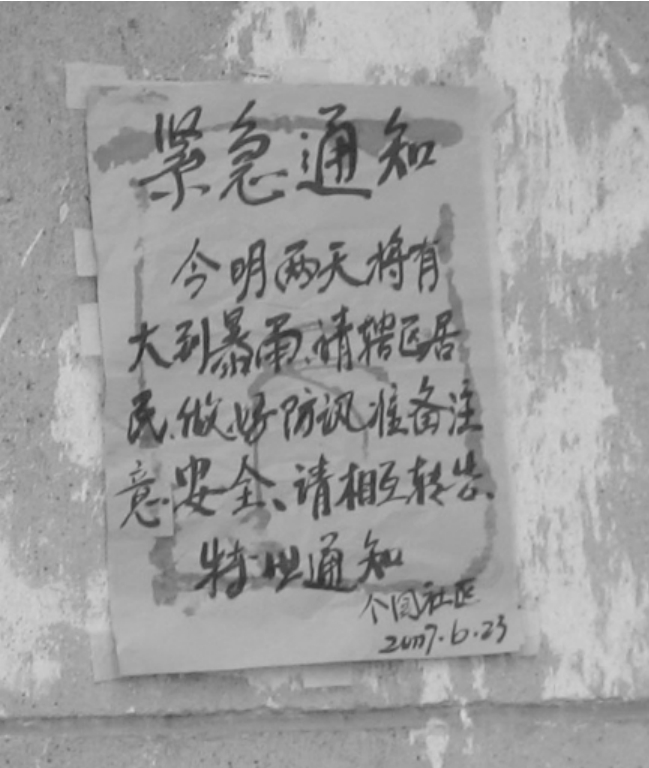 紧急通知
今明两天将有
大到暴雨、请辖区居
民、做好防讯准备注
意、安全、请相互转告、
特此通知
个园社区
2007.6.23